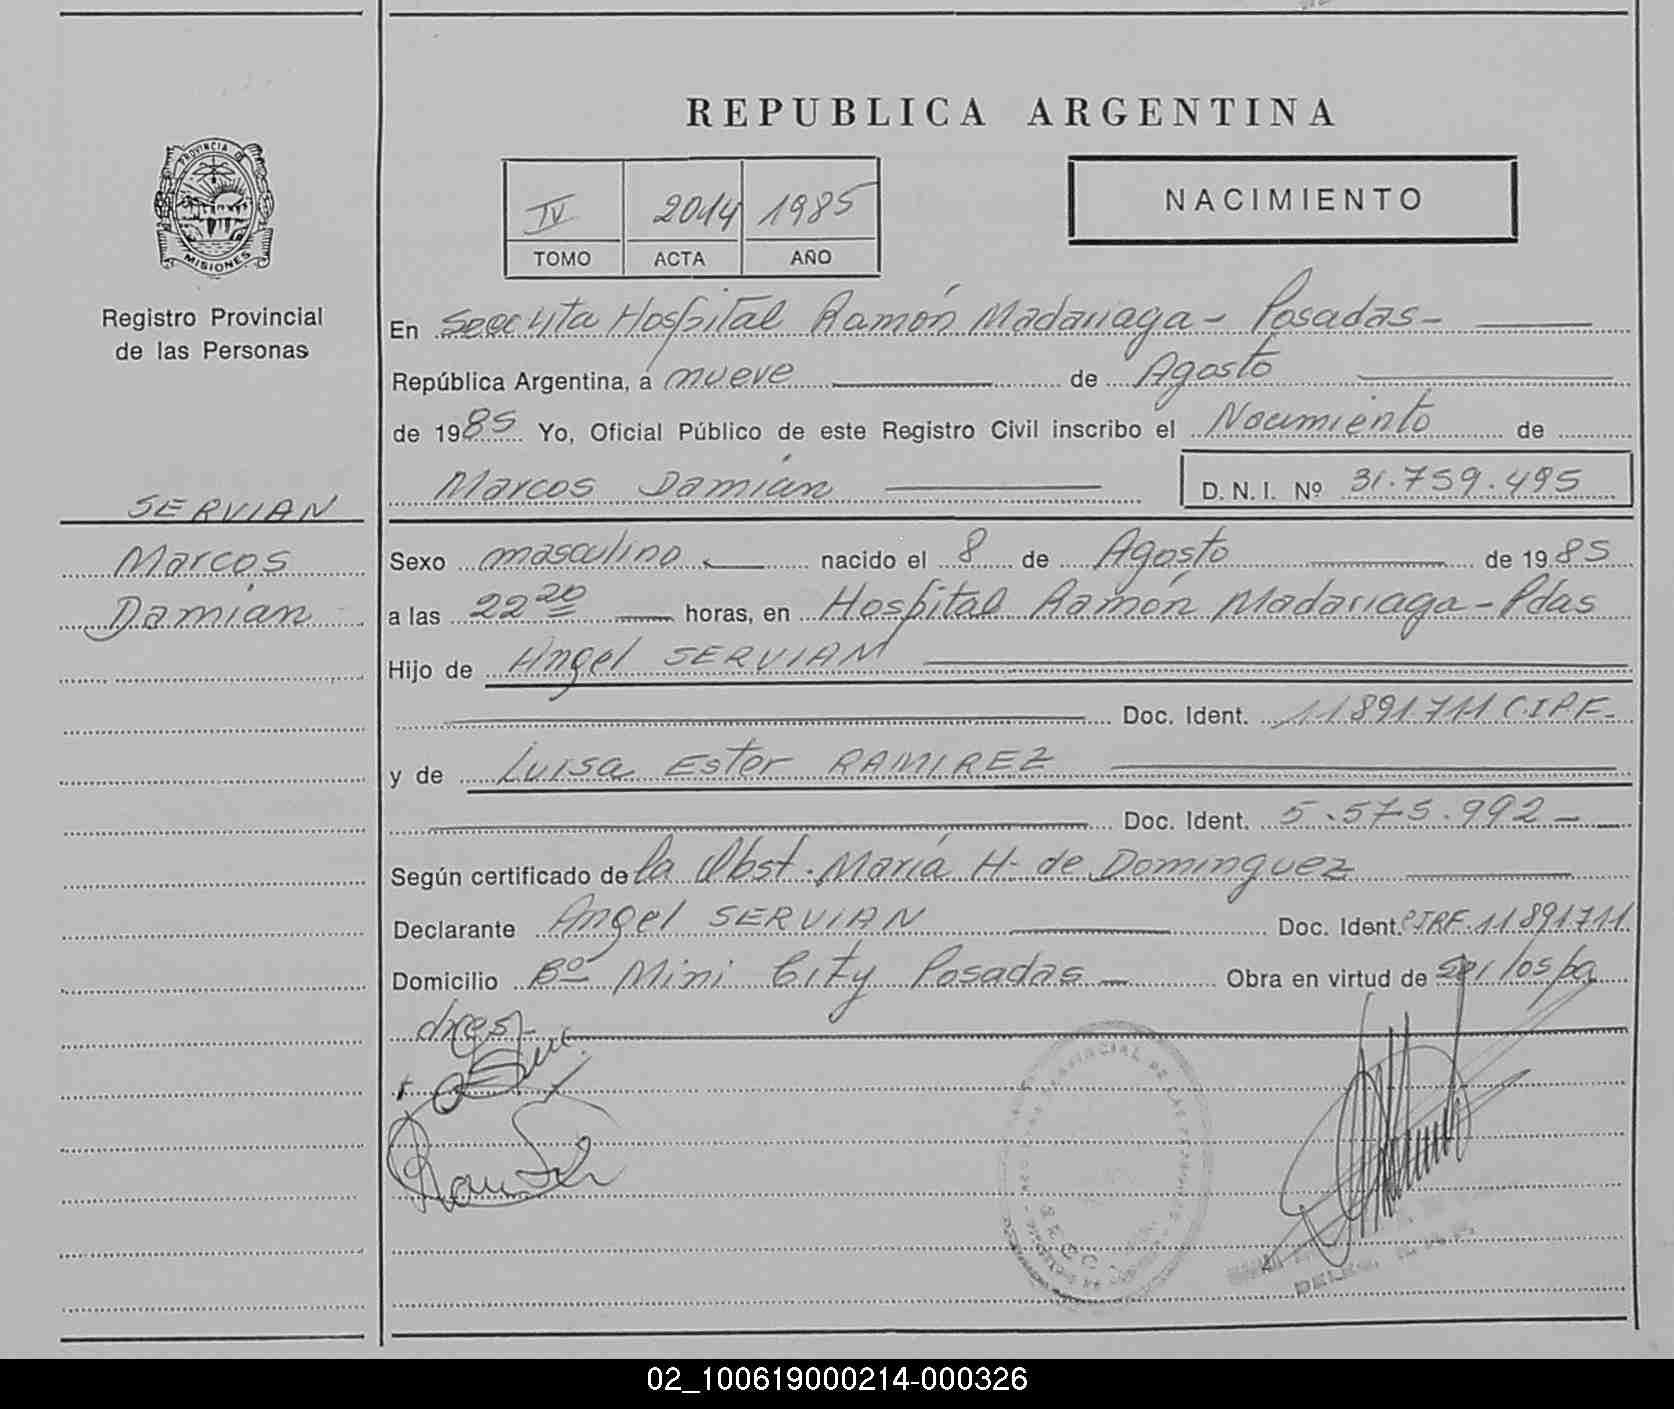 REPUBLICA ARGENTINA
PROVINCIA DE
MISIONES
Registro Provincial
de las Personas
IV 2014 1985
TOMO ACTA AÑO
NACIMIENTO
En Hospital Ramón Madariaga - Posadas -
República Argentina, a nueve de Agosto
de 1985 Yo, Oficial Público de este Registro Civil inscribo el Nacimiento de
Marcos Damián D. N. I. Nº 31.759.495
SERVIAN
Marcos
Damián
Sexo masculino nacido el 8 de Agosto de 1985
a las 22 20 horas, en Hospital Ramón Madariaga - Pdas
Hijo de Angel SERVIAN
Doc. Ident. 11891711 CIPF-
y de Luisa Ester RAMIREZ
Doc. Ident. 5.575.992 -
Según certificado de la Obst. María H. de Dominguez
Declarante Angel SERVIAN Doc. Ident. 11891711
Domicilio Bº Mini City Posadas - Obra en virtud de ser los pa
dres-
02_100619000214-000326